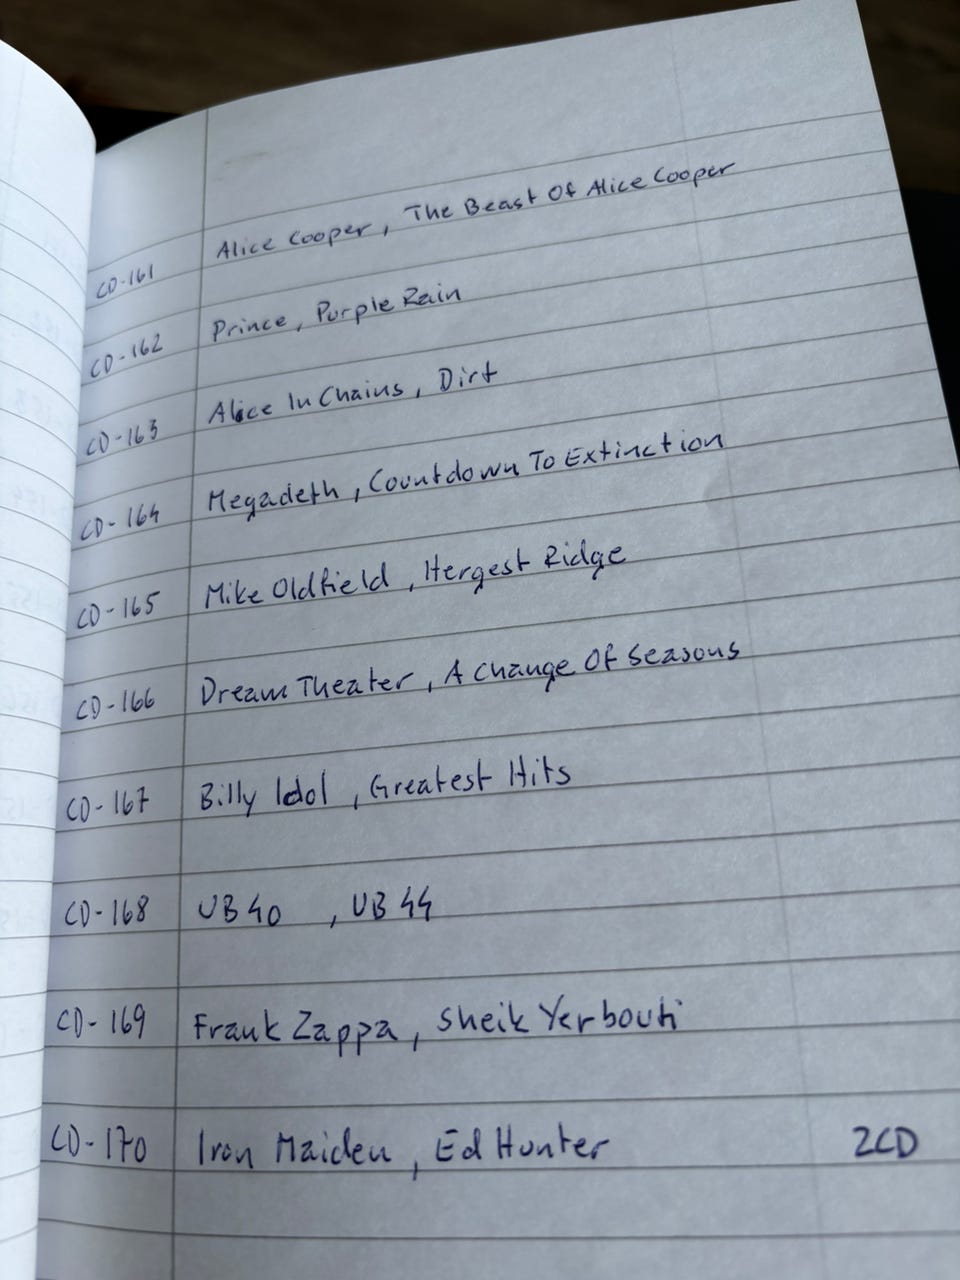 CD-161 Alice Cooper, The Beast Of Alice Cooper
CD-162 Prince, Purple Rain
CD-163 Alice In Chains, Dirt
CD-164 Megadeth, Countdown To Extinction
CD-165 Mike Oldfield, Hergest Ridge
CD-166 Dream Theater, A Change Of Seasons
CD-167 Billy Idol, Greatest Hits
CD-168 UB 40, UB 44
CD-169 Frank Zappa, Sheik Yerbouti
CD-170 Iron Maiden, Ed Hunter 2CD